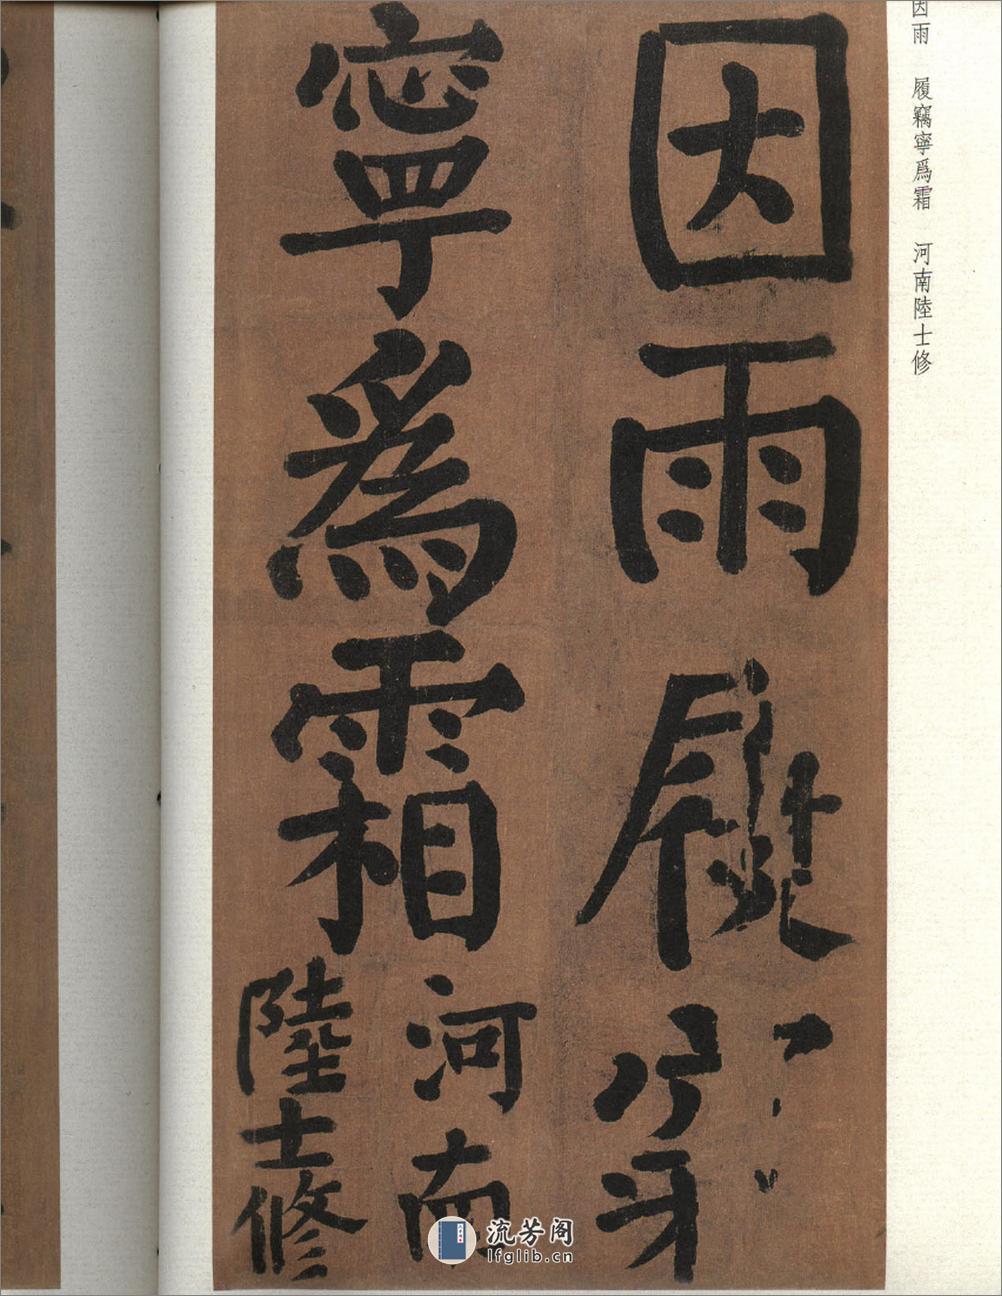 因雨 履竊寧爲霜 河南陸士修
因雨履
寧爲霜
河南
陸士修
流芳阁
lfglib.cn